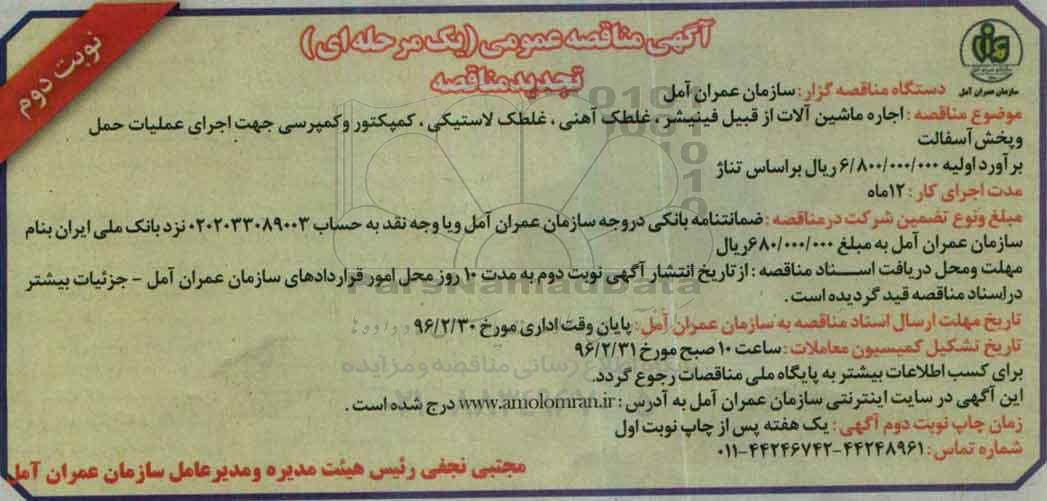 نوبت دوم
آگهی مناقصه عمومی (یک مرحله ای)
تجدیدمناقصه
سازمان عمران آمل
دستگاه مناقصه گزار: سازمان عمران آمل
موضوع مناقصه: اجاره ماشین آلات از قبیل فینیشر، غلطک آهنی، غلطک لاستیکی، کمپکتور و کمپرسی جهت اجرای عملیات حمل
وپخش آسفالت
برآورد اولیه ۶/۸۰۰/۰۰۰/۰۰۰ ریال براساس تناژ
مدت اجرای کار: ۱۲ماه
مبلغ ونوع تضمین شرکت درمناقصه: ضمانتنامه بانکی دروجه سازمان عمران آمل ویا وجه نقد به حساب ۰۲۰۲۰۳۳۰۸۹۰۰۳ نزد بانک ملی ایران بنام
سازمان عمران آمل به مبلغ ۶۸۰/۰۰۰/۰۰۰ریال
مهلت ومحل دریافت اسناد مناقصه: ازتاریخ انتشار آگهی نوبت دوم به مدت ۱۰ روز محل امور قراردادهای سازمان عمران آمل - جزئیات بیشتر
دراسناد مناقصه قید گردیده است.
تاریخ مهلت ارسال اسناد مناقصه به سازمان عمران آمل: پایان وقت اداری مورخ ۹۶/۲/۳۰
تاریخ تشکیل کمیسیون معاملات: ساعت ۱۰ صبح مورخ ۹۶/۲/۳۱
برای کسب اطلاعات بیشتر به پایگاه ملی مناقصات رجوع گردد.
این آگهی در سایت اینترنتی سازمان عمران آمل به آدرس: www.amolomran.ir درج شده است.
زمان چاپ نوبت دوم آگهی: یک هفته پس از چاپ نوبت اول
شماره تماس: ۴۴۲۴۸۹۶۱-۴۴۲۴۶۷۴۲-۰۱۱
مجتبی نجفی رئیس هیئت مدیره ومدیرعامل سازمان عمران آمل
ParsNamadData